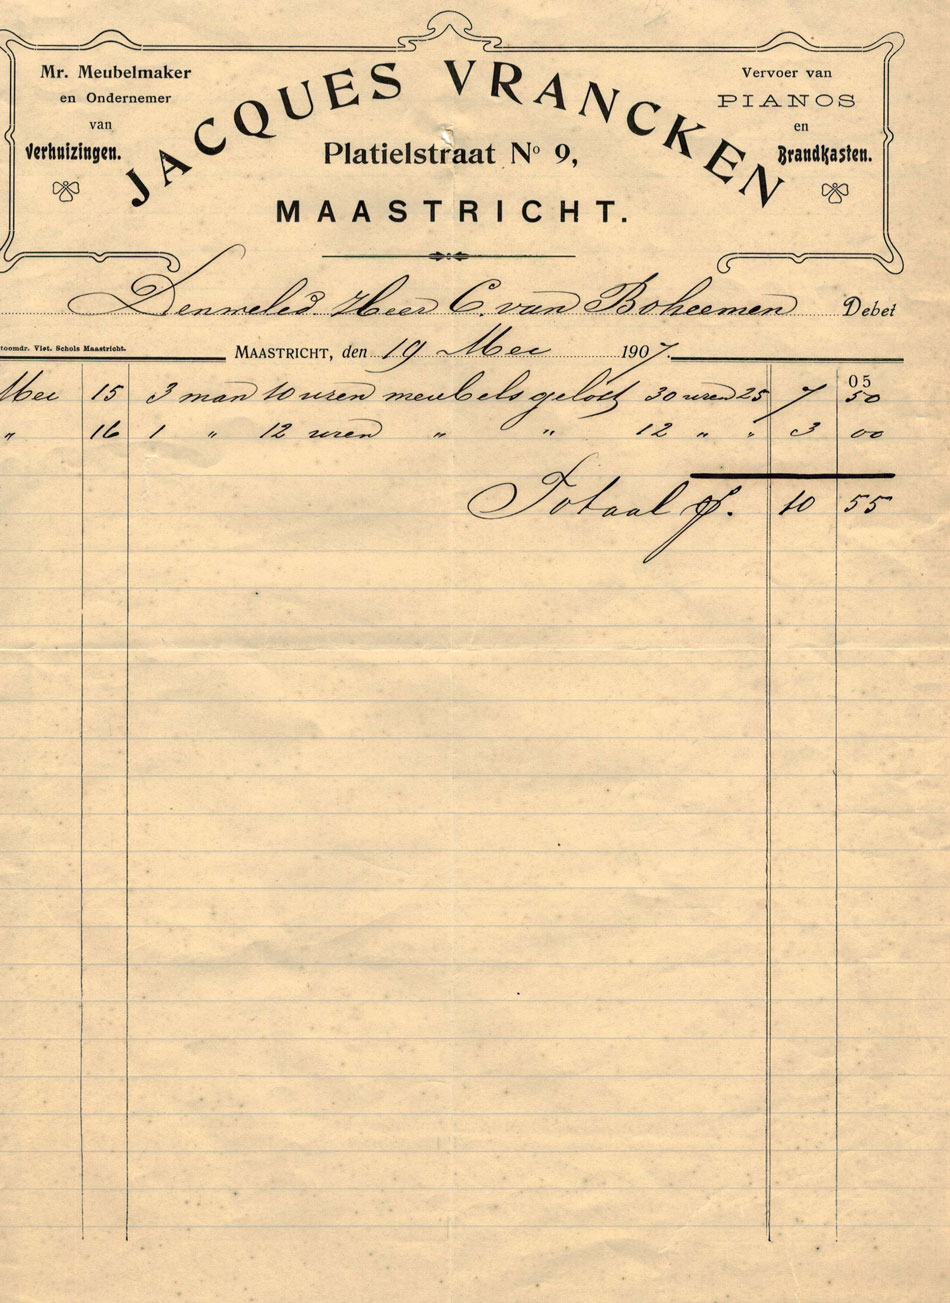 Mr. Meubelmaker
en Ondernemer
van
Verhuizingen.
JACQUES VRANCKEN
Platielstraat No 9,
MAASTRICHT.
Vervoer van
PIANOS
en
Brandkasten.
Heer C. van Boheemen Debet
toomdr. Vlet. Schols Maastricht.
MAASTRICHT, den 19 Mei 1907.
Mei 15 3 man 10 uren meubels gelost 30 uren 25 7 05 50
" 16 1 " 12 uren " " 12 " " 3 00
Totaal f. 10 55